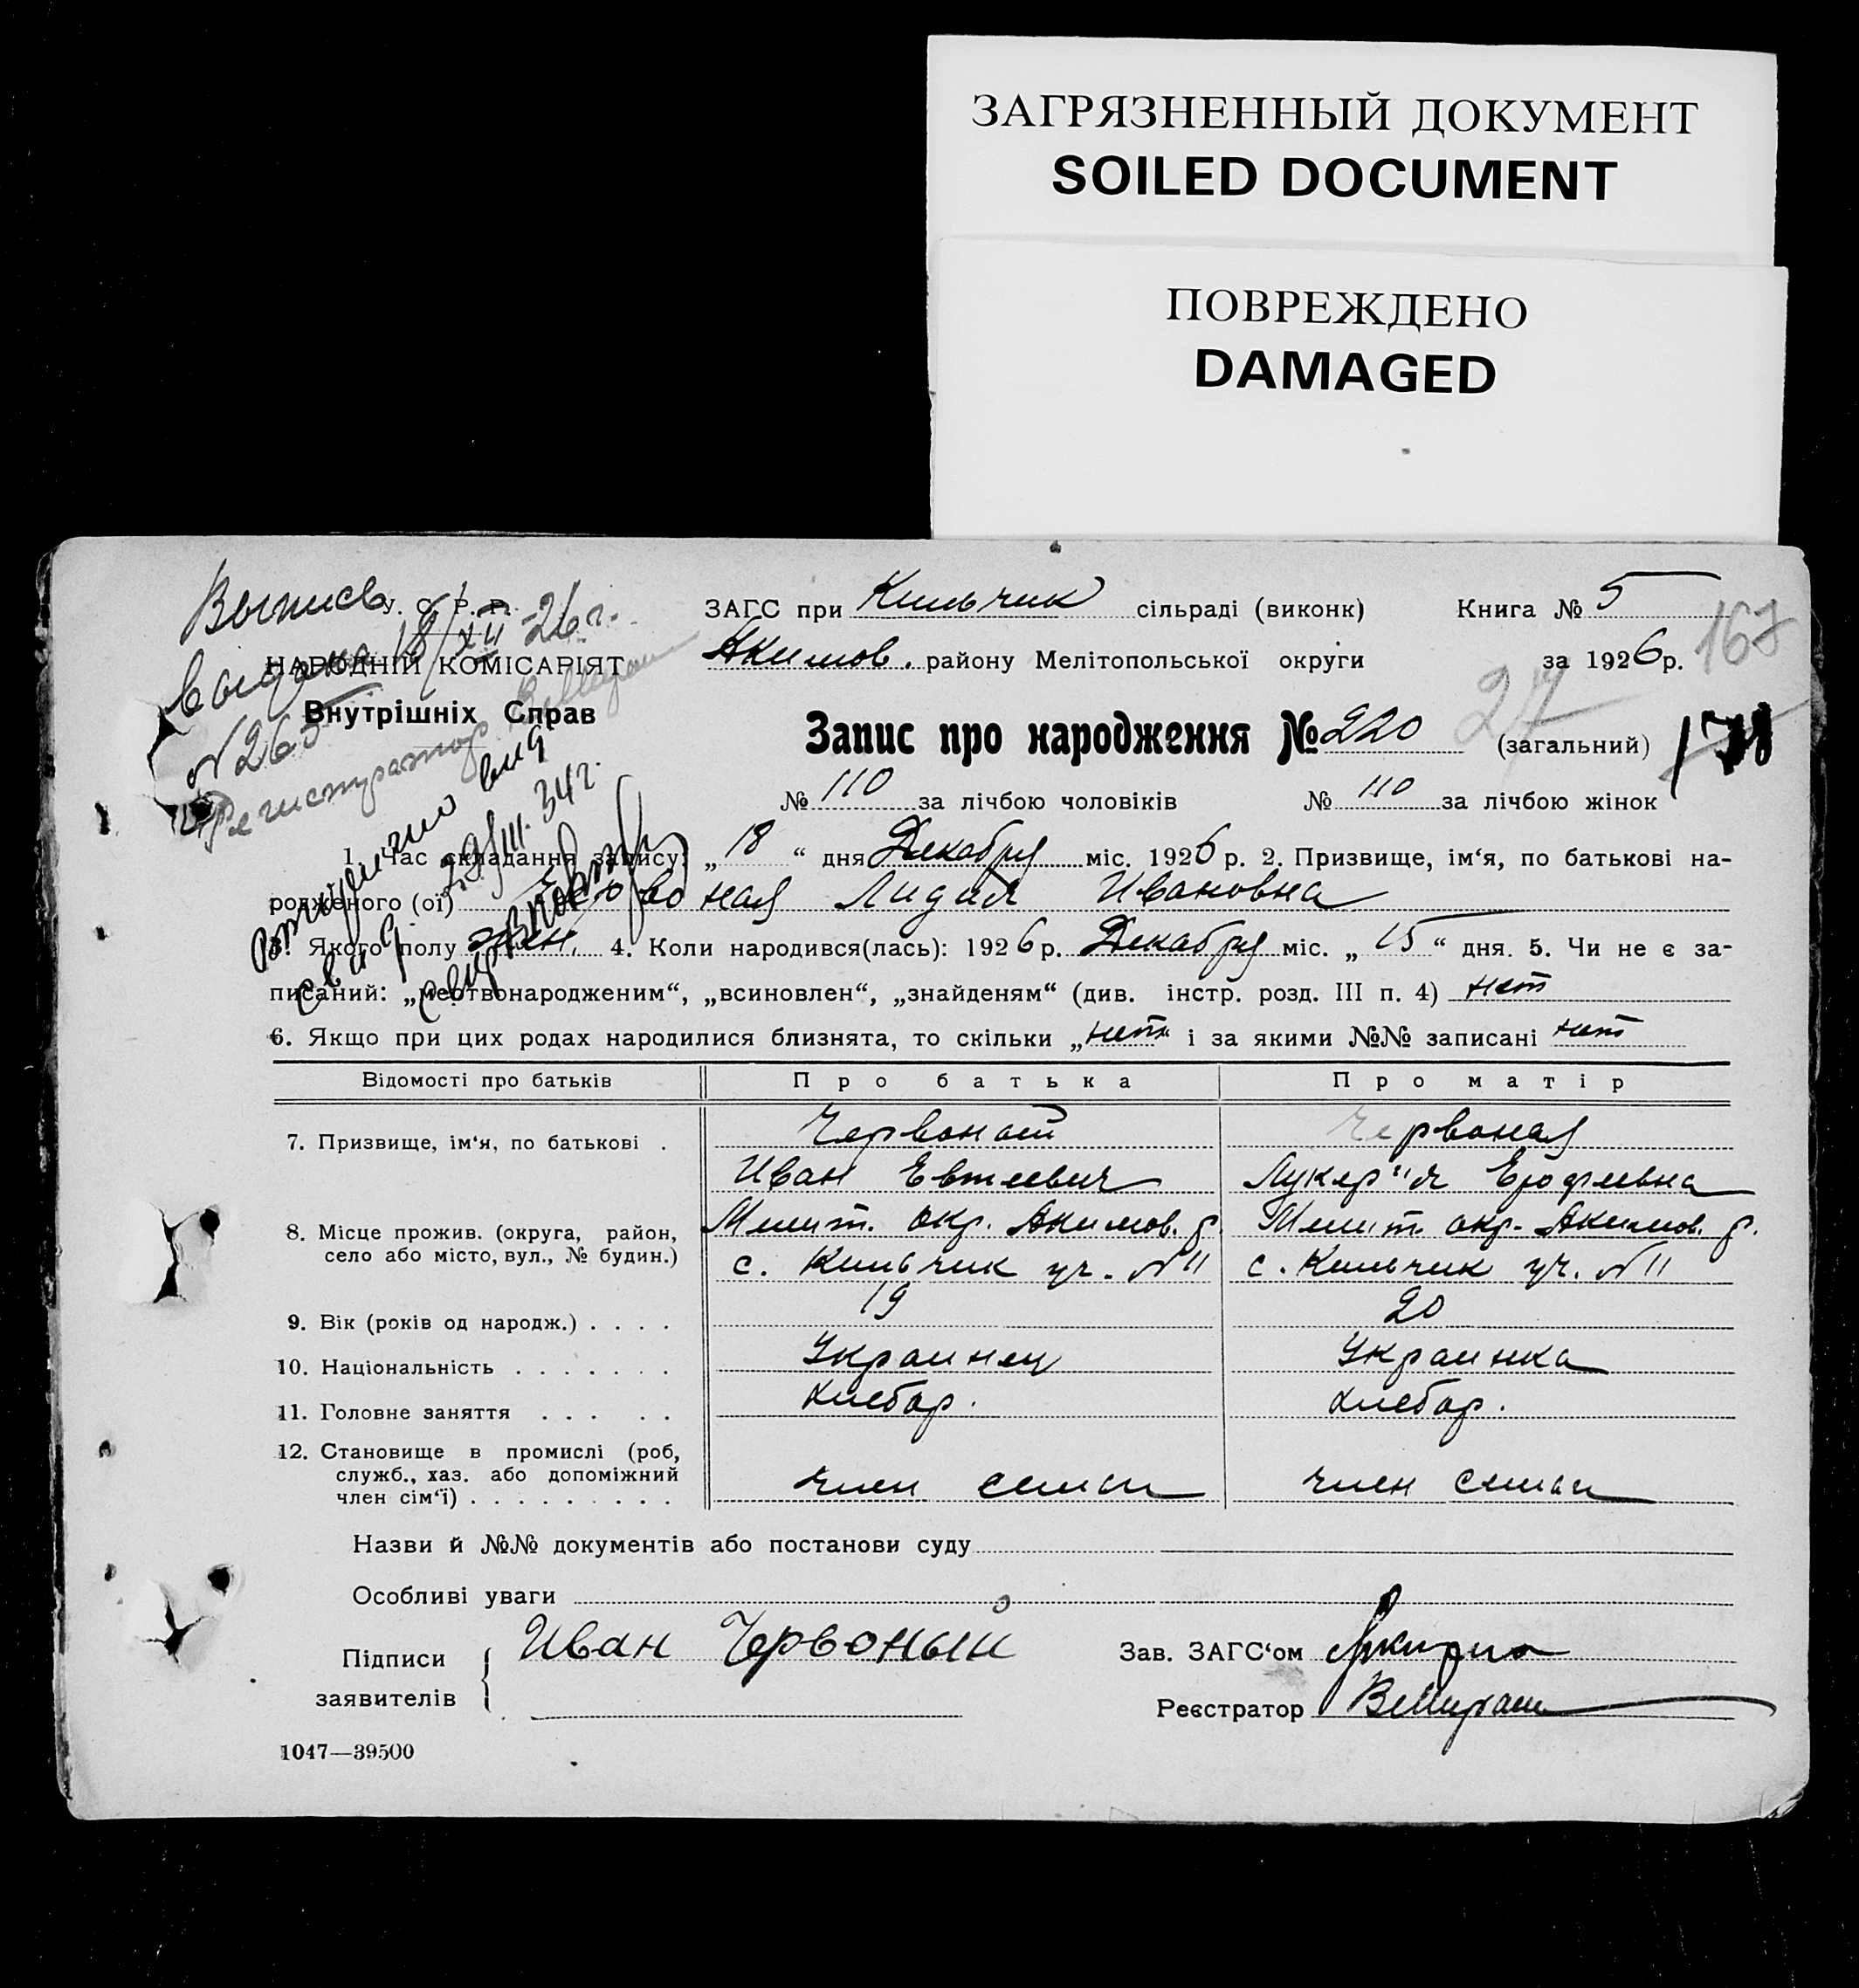 ЗАГРЯЗНЕННЫЙ ДОКУМЕНТ
SOILED DOCUMENT
ПОВРЕЖДЕНО
DAMAGED
Выпись
выдана 18/XII-26г.
№ 265
Регистратор
У. С. Р. Р.
НАРОДНІЙ КОМІСАРІЯТ
Внутрішніх Справ
29/III. 34г.
ЗАГС при Кильчик сільраді (виконк) Книга № 5
Акимов. району Мелітопольської округи за 1926р.
167
27
Запис про народження № 220 (загальний)
№ 110 за лічбою чоловіків № 110 за лічбою жінок
1. Час складання запису: „18“ дня Декабря міс. 1926 р. 2. Призвище, ім‘я, по батькові на-
родженого (ої) Червоная Лидия Ивановна
3. Якого полу жен. 4. Коли народився(лась): 1926 р. Декабря міс. „15“ дня. 5. Чи не є за-
писаний: „мертвонародженим“, „всиновлен“, „знайденям“ (див. інстр. розд. III п. 4) нет
6. Якщо при цих родах народилися близнята, то скільки „нет“ і за якими №№ записані нет
Відомості про батьків Про батька Про матір
7. Призвище, ім‘я, по батькові . Червоный Червоная
Иван Евтеевич Лукерия Ерофеевна
8. Місце прожив. (округа, район, Мелит. окр. Акимов. р. Мелит. окр. Акимов. р.
село або місто, вул., № будин.) с. Кильчик уч. № 11 с. Кильчик уч. № 11
9. Вік (років од народж.) . . . . 19 20
10. Національність . . . . . . . Украинец Украинка
11. Головне заняття . . . . . Хлебор. Хлебор.
12. Становище в промислі (роб,
служб., хаз. або допоміжний
член сім‘ї) . . . . . . . . . член семьи член семьи
Назви й №№ документів або постанови суду
Особливі уваги
Підписи заявителів Иван Червоный
Зав. ЗАГС‘ом
Реєстратор
1047—39500